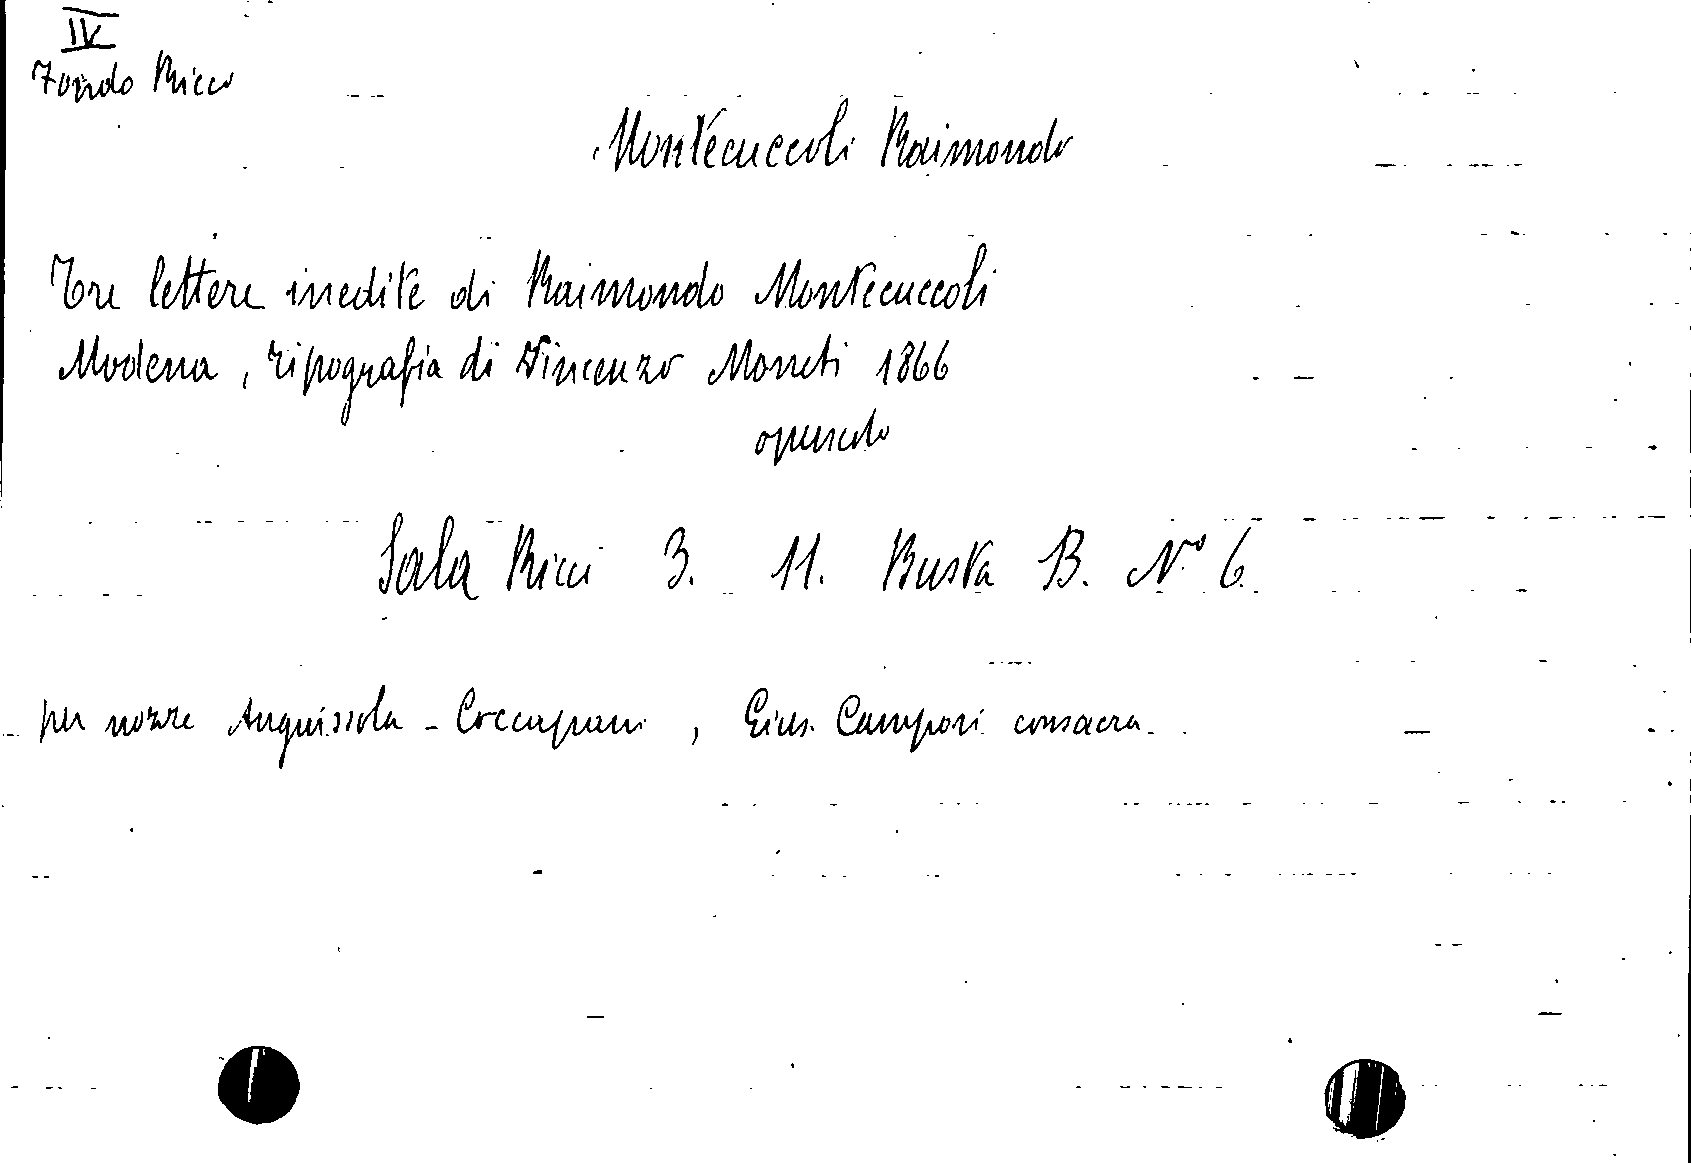 IV
Fondo Ricci
Montecuccoli Raimondo
Tre lettere inedite di Raimondo Montecuccoli
Modena, tipografia di Vincenzo Moneti 1866
opuscolo
Sala Ricci 3. 11. Busta B. N.o 6.
per nozze Anguissola - Coccapani, Gius. Campori consacra.